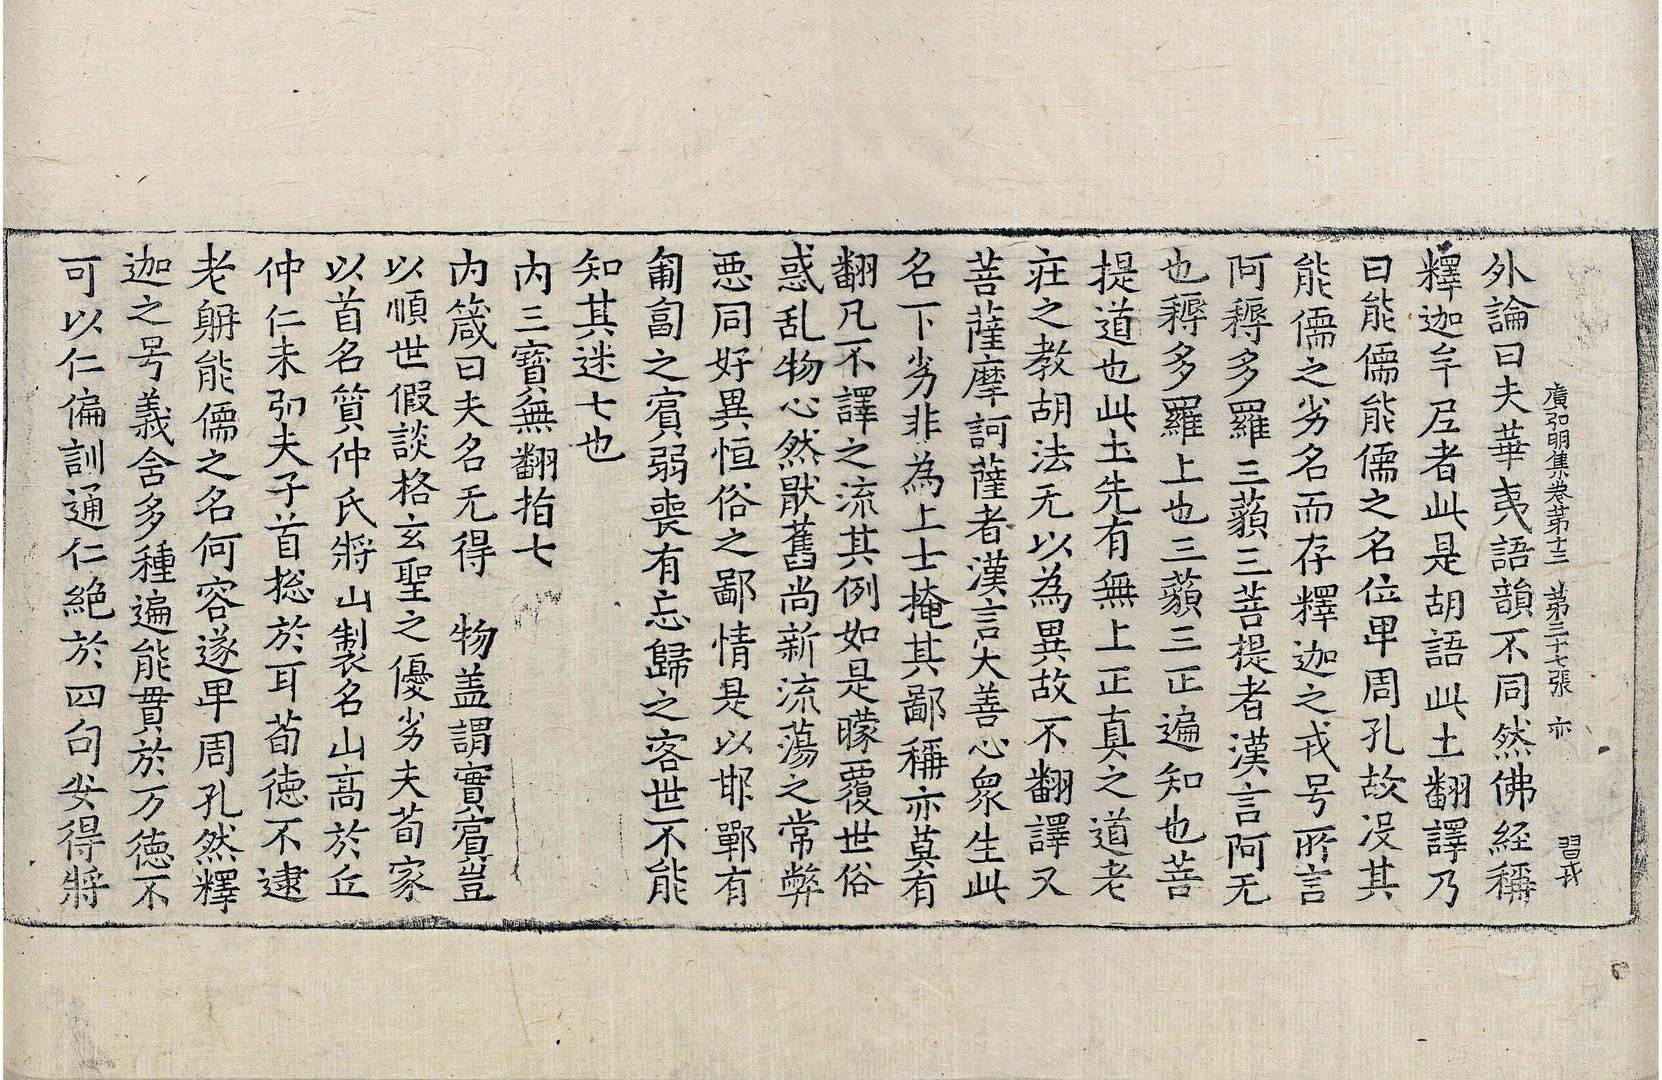 廣弘明集卷第十三　第三十七張　亦
習戎
外論曰夫華夷語韻不同然佛經稱
釋迦牟尼者此是胡語此土翻譯乃
曰能儒能儒之名位卑周孔故没其
能儒之劣名而存釋迦之戎号所言
阿耨多羅三藐三菩提者漢言阿无
也耨多羅上也三藐三正遍知也菩
提道也此土先有無上正真之道老
莊之教胡法无以為異故不翻譯又
菩薩摩訶薩者漢言大善心眾生此
名下劣非為上士掩其鄙稱亦莫有
翻凡不譯之流其例如是曚覆世俗
惑乱物心然猒舊尚新流蕩之常弊
惡同好異恒俗之鄙情是以邯鄲有
匍匐之賓弱喪有忘歸之客世不能
知其迷七也
內三寶無翻指七
內箴曰夫名无得　物盖謂實賓豈
以順世假談格玄聖之優劣夫荀家
以首名質仲氏將山製名山高於丘
仲仁未刅夫子首捴於耳荀德不逮
老躬能儒之名何容遂卑周孔然釋
迦之号義含多種遍能貫於万德不
可以仁偏訓通仁絶於四句安得將